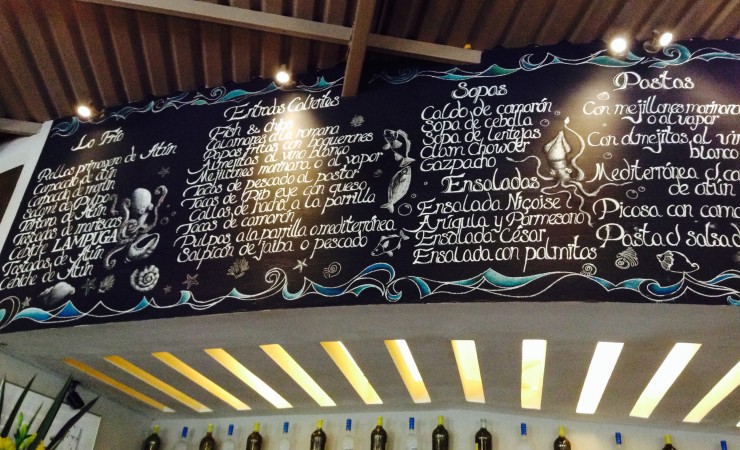 Lo Frío
Rollos primavera de Atún
Carpaccio d atún
Carpaccio d martín
Salami de Pulpo
Tostadas de mariscos
Ceviche LAMPUGA
Tostadas de Atún
Ceviche de Atún
Entradas Calientes
Fish & chips
Calamares a la romana
Papas fritas con boquerones
al vino blanco
Mejillones marinara o al vapor
Tacos de pescado al pastor
Tacos de Rib eye con queso
Callos de hacha a la parrilla
Tacos de camarón
Pulpos a la parrilla o mediterránea
Salpicón de jaiba o pescado
Sopas
Caldo de camarón
Sopa de cebolla
Sopa de lentejas
Clam Chowder
Gazpacho
Ensaladas
Ensalada Niçoise
Arúgula y Parmesano
Ensalada César
Ensalada con palmitos
Pastas
Con mejillones marinara
o al vapor
Con almejitas, al vino
blanco
Mediterránea c/
de atún
Picosa con
Pasta d